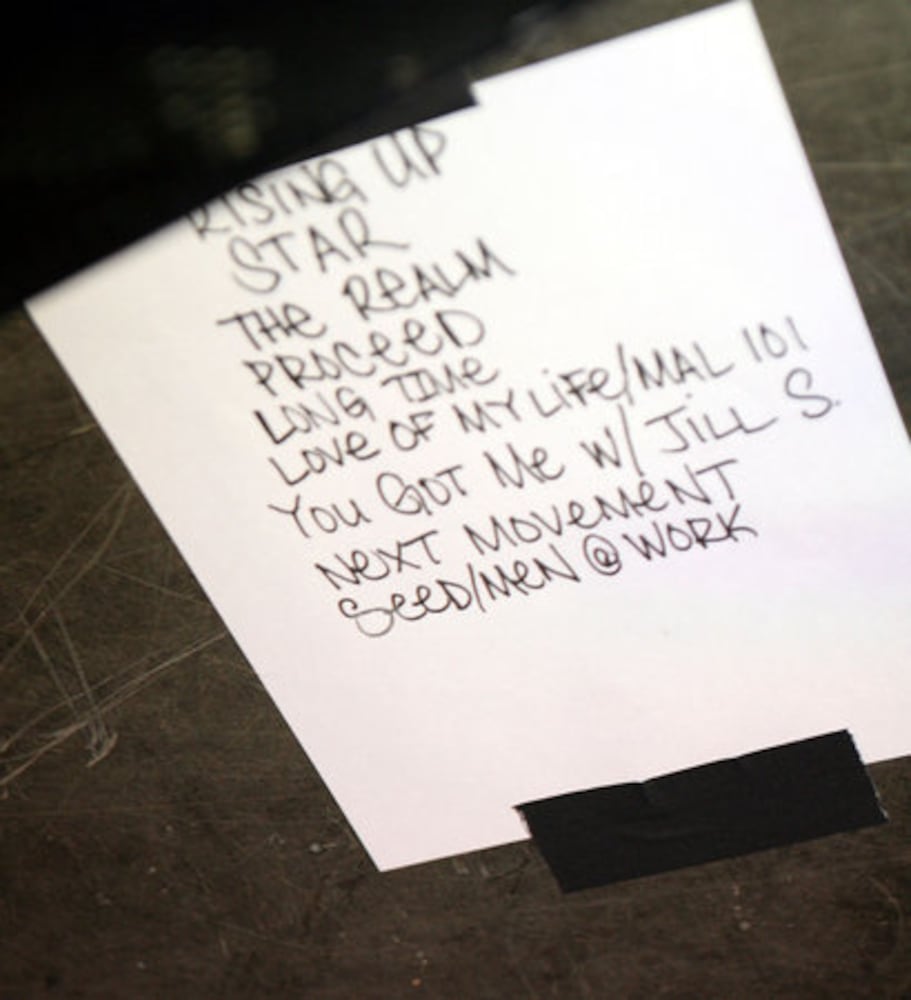 RISING UP
STAR
THE REALM
PROCEED
LONG TIME
LOVE OF MY LIFE/MAL 101
YOU GOT ME W/ JILL S.
NEXT MOVEMENT
SEED/MEN @ WORK